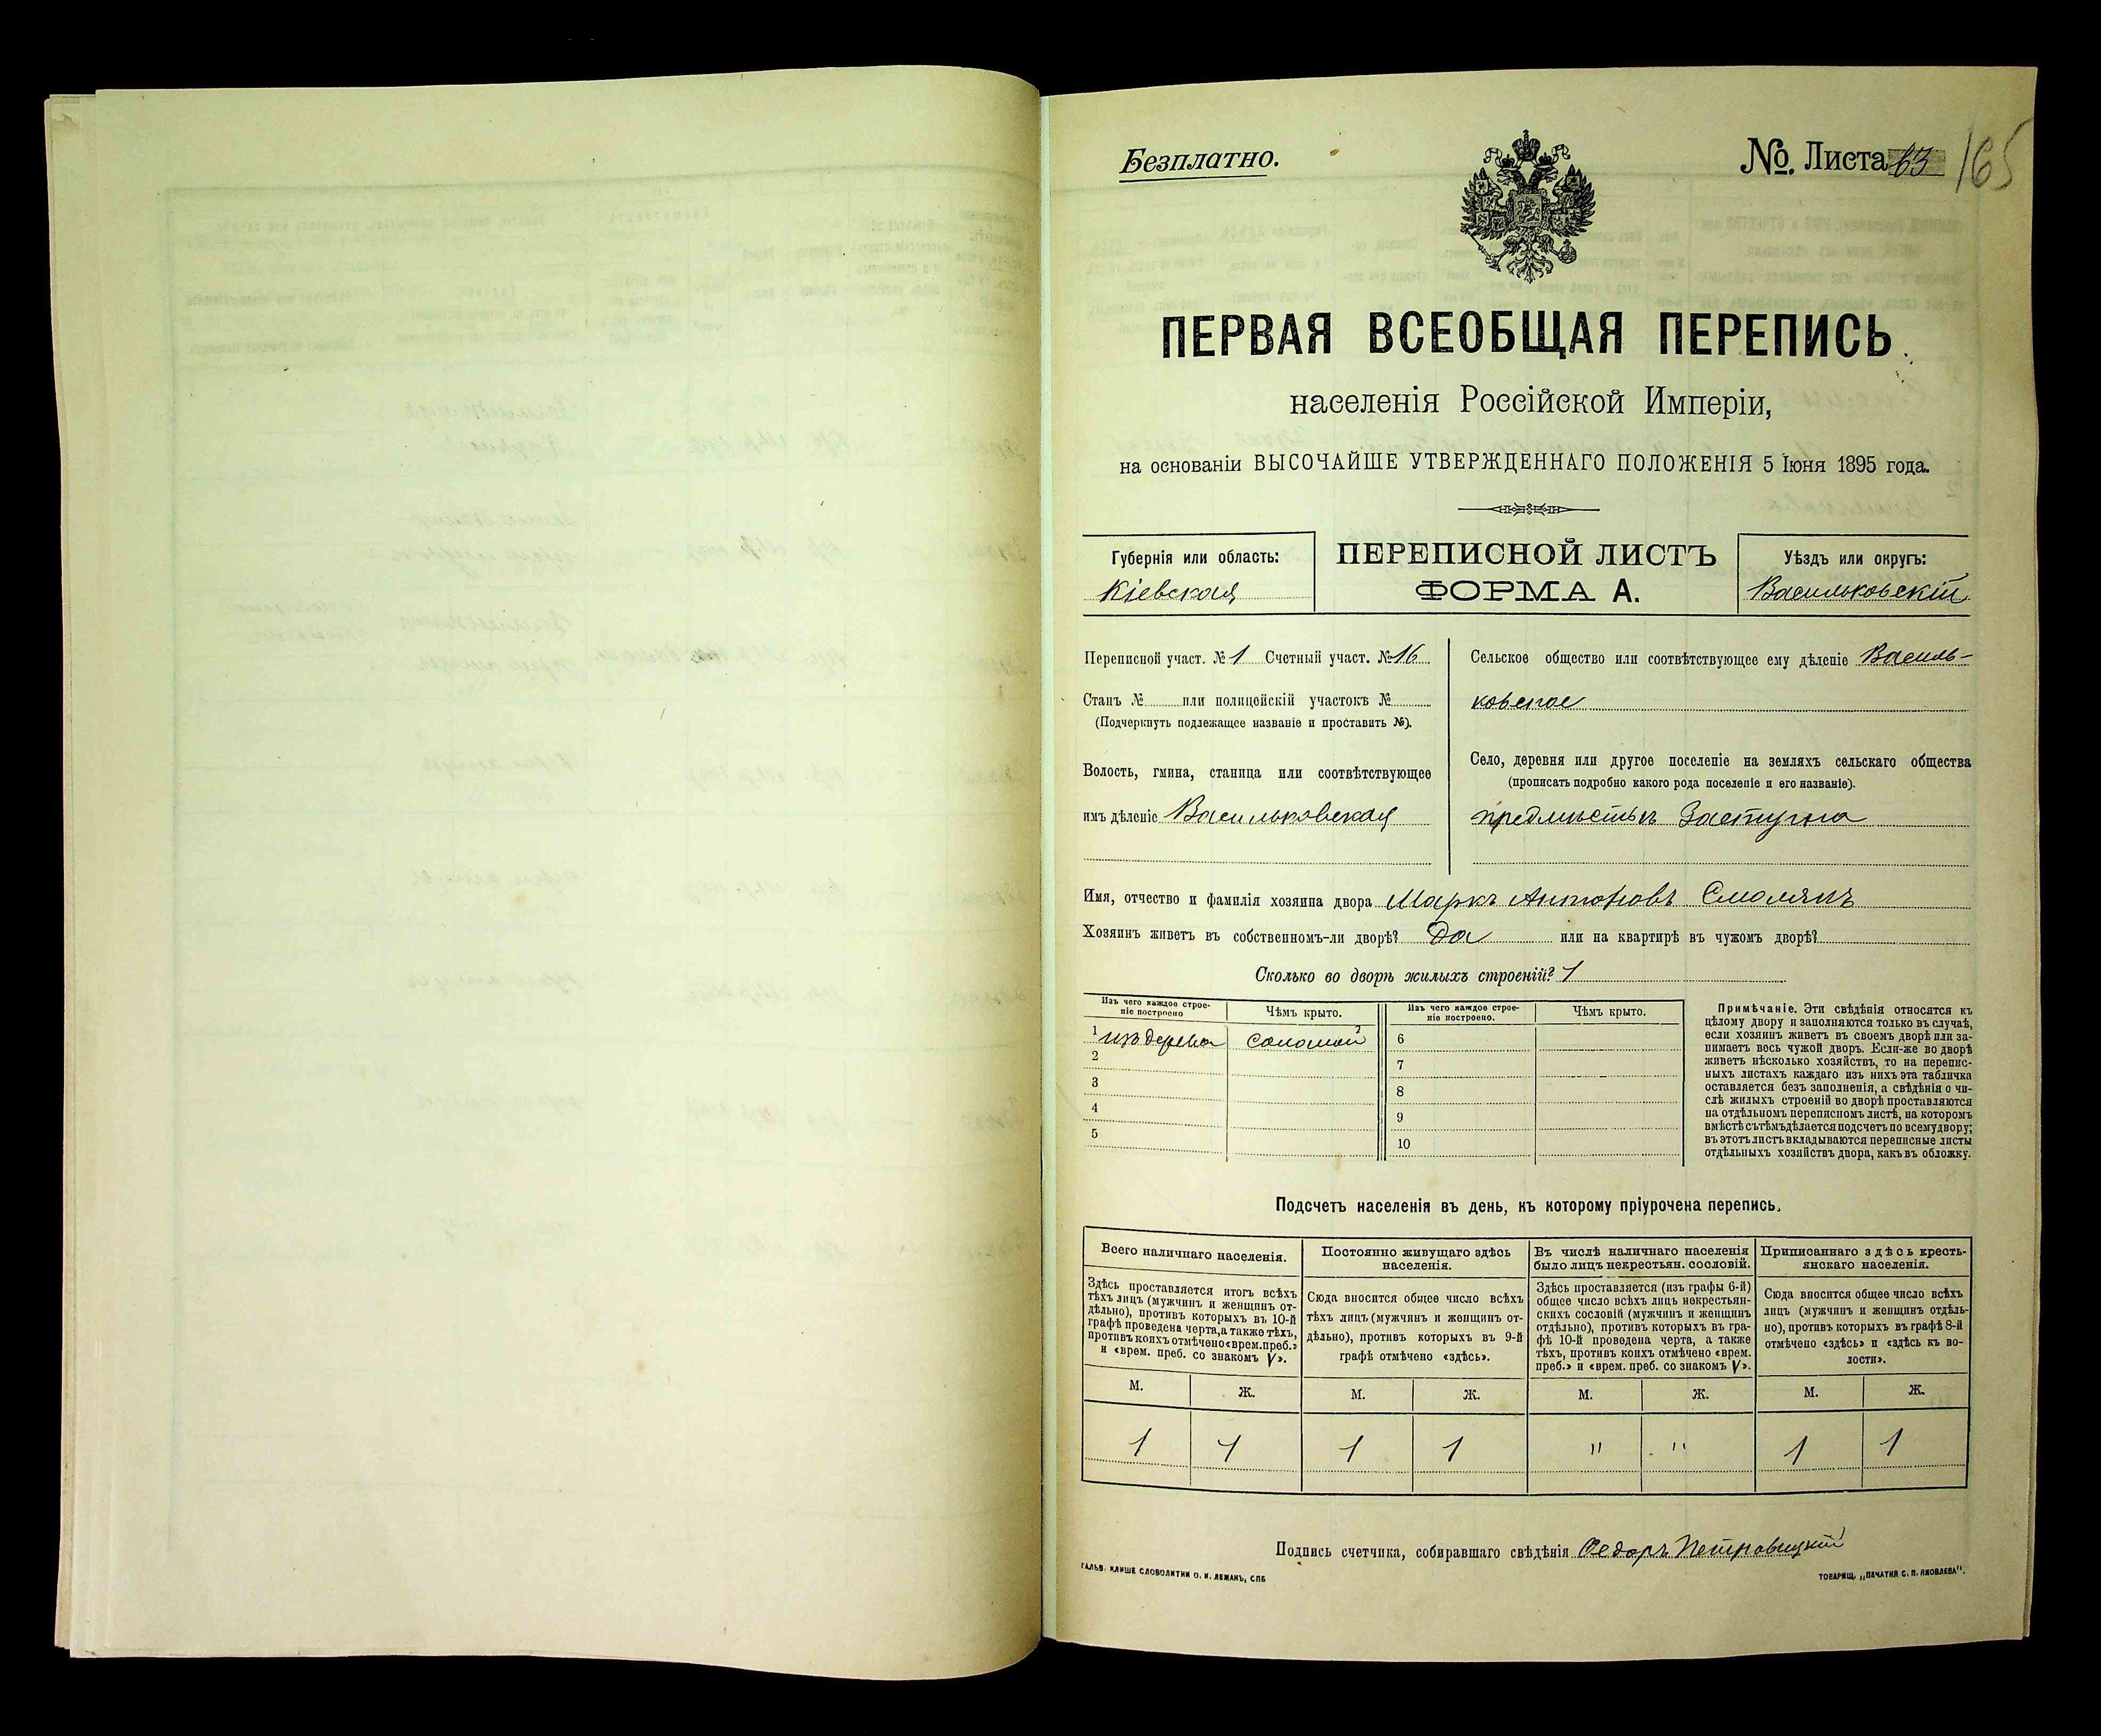 Безплатно.
№. Листа 63 165
ПЕРВАЯ ВСЕОБЩАЯ ПЕРЕПИСЬ
населенія Россійской Имперіи,
на основаніи ВЫСОЧАЙШЕ УТВЕРЖДЕННАГО ПОЛОЖЕНІЯ 5 Іюня 1895 года.
Губернія или область:
Кіевская
ПЕРЕПИСНОЙ ЛИСТЪ
ФОРМА А.
Уѣздъ или округъ:
Васильковскій
Переписной участ. № 1 Счетный участ. № 16
Станъ № или полицейскій участокъ №
(Подчеркнуть подлежащее названіе и проставить №).
Волость, гмина, станица или соотвѣтствующее
имъ дѣленіе Васильковская
Сельское общество или соотвѣтствующее ему дѣленіе Василь-
ковское
Село, деревня или другое поселеніе на земляхъ сельскаго общества
(прописать подробно какого рода поселеніе и его названіе).
предмѣстье Застугна
Имя, отчество и фамилія хозяина двора Маркъ Антоновъ Смолякъ
Хозяинъ живетъ въ собственномъ-ли дворѣ? Да или на квартирѣ въ чужомъ дворѣ?
Сколько во дворѣ жилыхъ строеній? 1
Изъ чего каждое строе-
ніе построено
Чѣмъ крыто.
Изъ чего каждое строе-
ніе построено.
Чѣмъ крыто.
1 изъ дерева соломой
2
3
4
5
6
7
8
9
10
Примѣчаніе. Эти свѣдѣнія относятся къ
цѣлому двору и заполняются только въ случаѣ,
если хозяинъ живетъ въ своемъ дворѣ или за-
нимаетъ весь чужой дворъ. Если-же во дворѣ
живетъ нѣсколько хозяйствъ, то на перепис-
ныхъ листахъ каждаго изъ нихъ эта табличка
оставляется безъ заполненія, а свѣдѣнія о чи-
слѣ жилыхъ строеній во дворѣ проставляются
на отдѣльномъ переписномъ листѣ, на которомъ
вмѣстѣ съ тѣмъ дѣлается подсчетъ по всему двору;
въ этотъ листъ вкладываются переписные листы
отдѣльныхъ хозяйствъ двора, какъ въ обложку.
Подсчетъ населенія въ день, къ которому пріурочена перепись.
Всего наличнаго населенія.
Здѣсь проставляется итогъ всѣхъ
тѣхъ лицъ (мужчинъ и женщинъ от-
дѣльно), противъ которыхъ въ 10-й
графѣ проведена черта, а также тѣхъ,
противъ коихъ отмѣчено «врем. преб.»
и «врем. преб. со знакомъ V».
Постоянно живущаго здѣсь
населенія.
Сюда вносится общее число всѣхъ
тѣхъ лицъ (мужчинъ и женщинъ от-
дѣльно), противъ которыхъ въ 9-й
графѣ отмѣчено «здѣсь».
Въ числѣ наличнаго населенія
было лицъ некрестьян. сословій.
Здѣсь проставляется (изъ графы 6-й)
общее число всѣхъ лицъ некрестьян-
скихъ сословій (мужчинъ и женщинъ
отдѣльно), противъ которыхъ въ гра-
фѣ 10-й проведена черта, а также
тѣхъ, противъ коихъ отмѣчено «врем.
преб.» и «врем. преб. со знакомъ V».
Приписаннаго здѣсь кресть-
янскаго населенія.
Сюда вносится общее число всѣхъ
лицъ (мужчинъ и женщинъ отдѣль-
но), противъ которыхъ въ графѣ 8-й
отмѣчено «здѣсь» и «здѣсь къ во-
лости».
М. Ж. М. Ж. М. Ж. М. Ж.
1 1 1 1 " " 1 1
Подпись счетчика, собиравшаго свѣдѣнія Федоръ Петровицкій
ГАЛЬВ. КЛИШЕ СЛОВОЛИТНИ О. И. ЛЕМАНЪ, СПБ
ТОВАРИЩ. „ПЕЧАТНЯ С. П. ЯКОВЛЕВА".